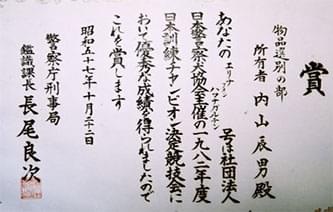 賞
物品選別の部
所有者 内山辰男殿
あなたの エリー フォン ハッナガルテン 号は社団法人
日本警察犬協会主催の一九八二年度
日本訓練チャンピオン決定競技会に
おいて優秀な成績を得られましたので
これを賞します
昭和五十七年十月二十三日
警察庁刑事局
鑑識課長 長尾良次